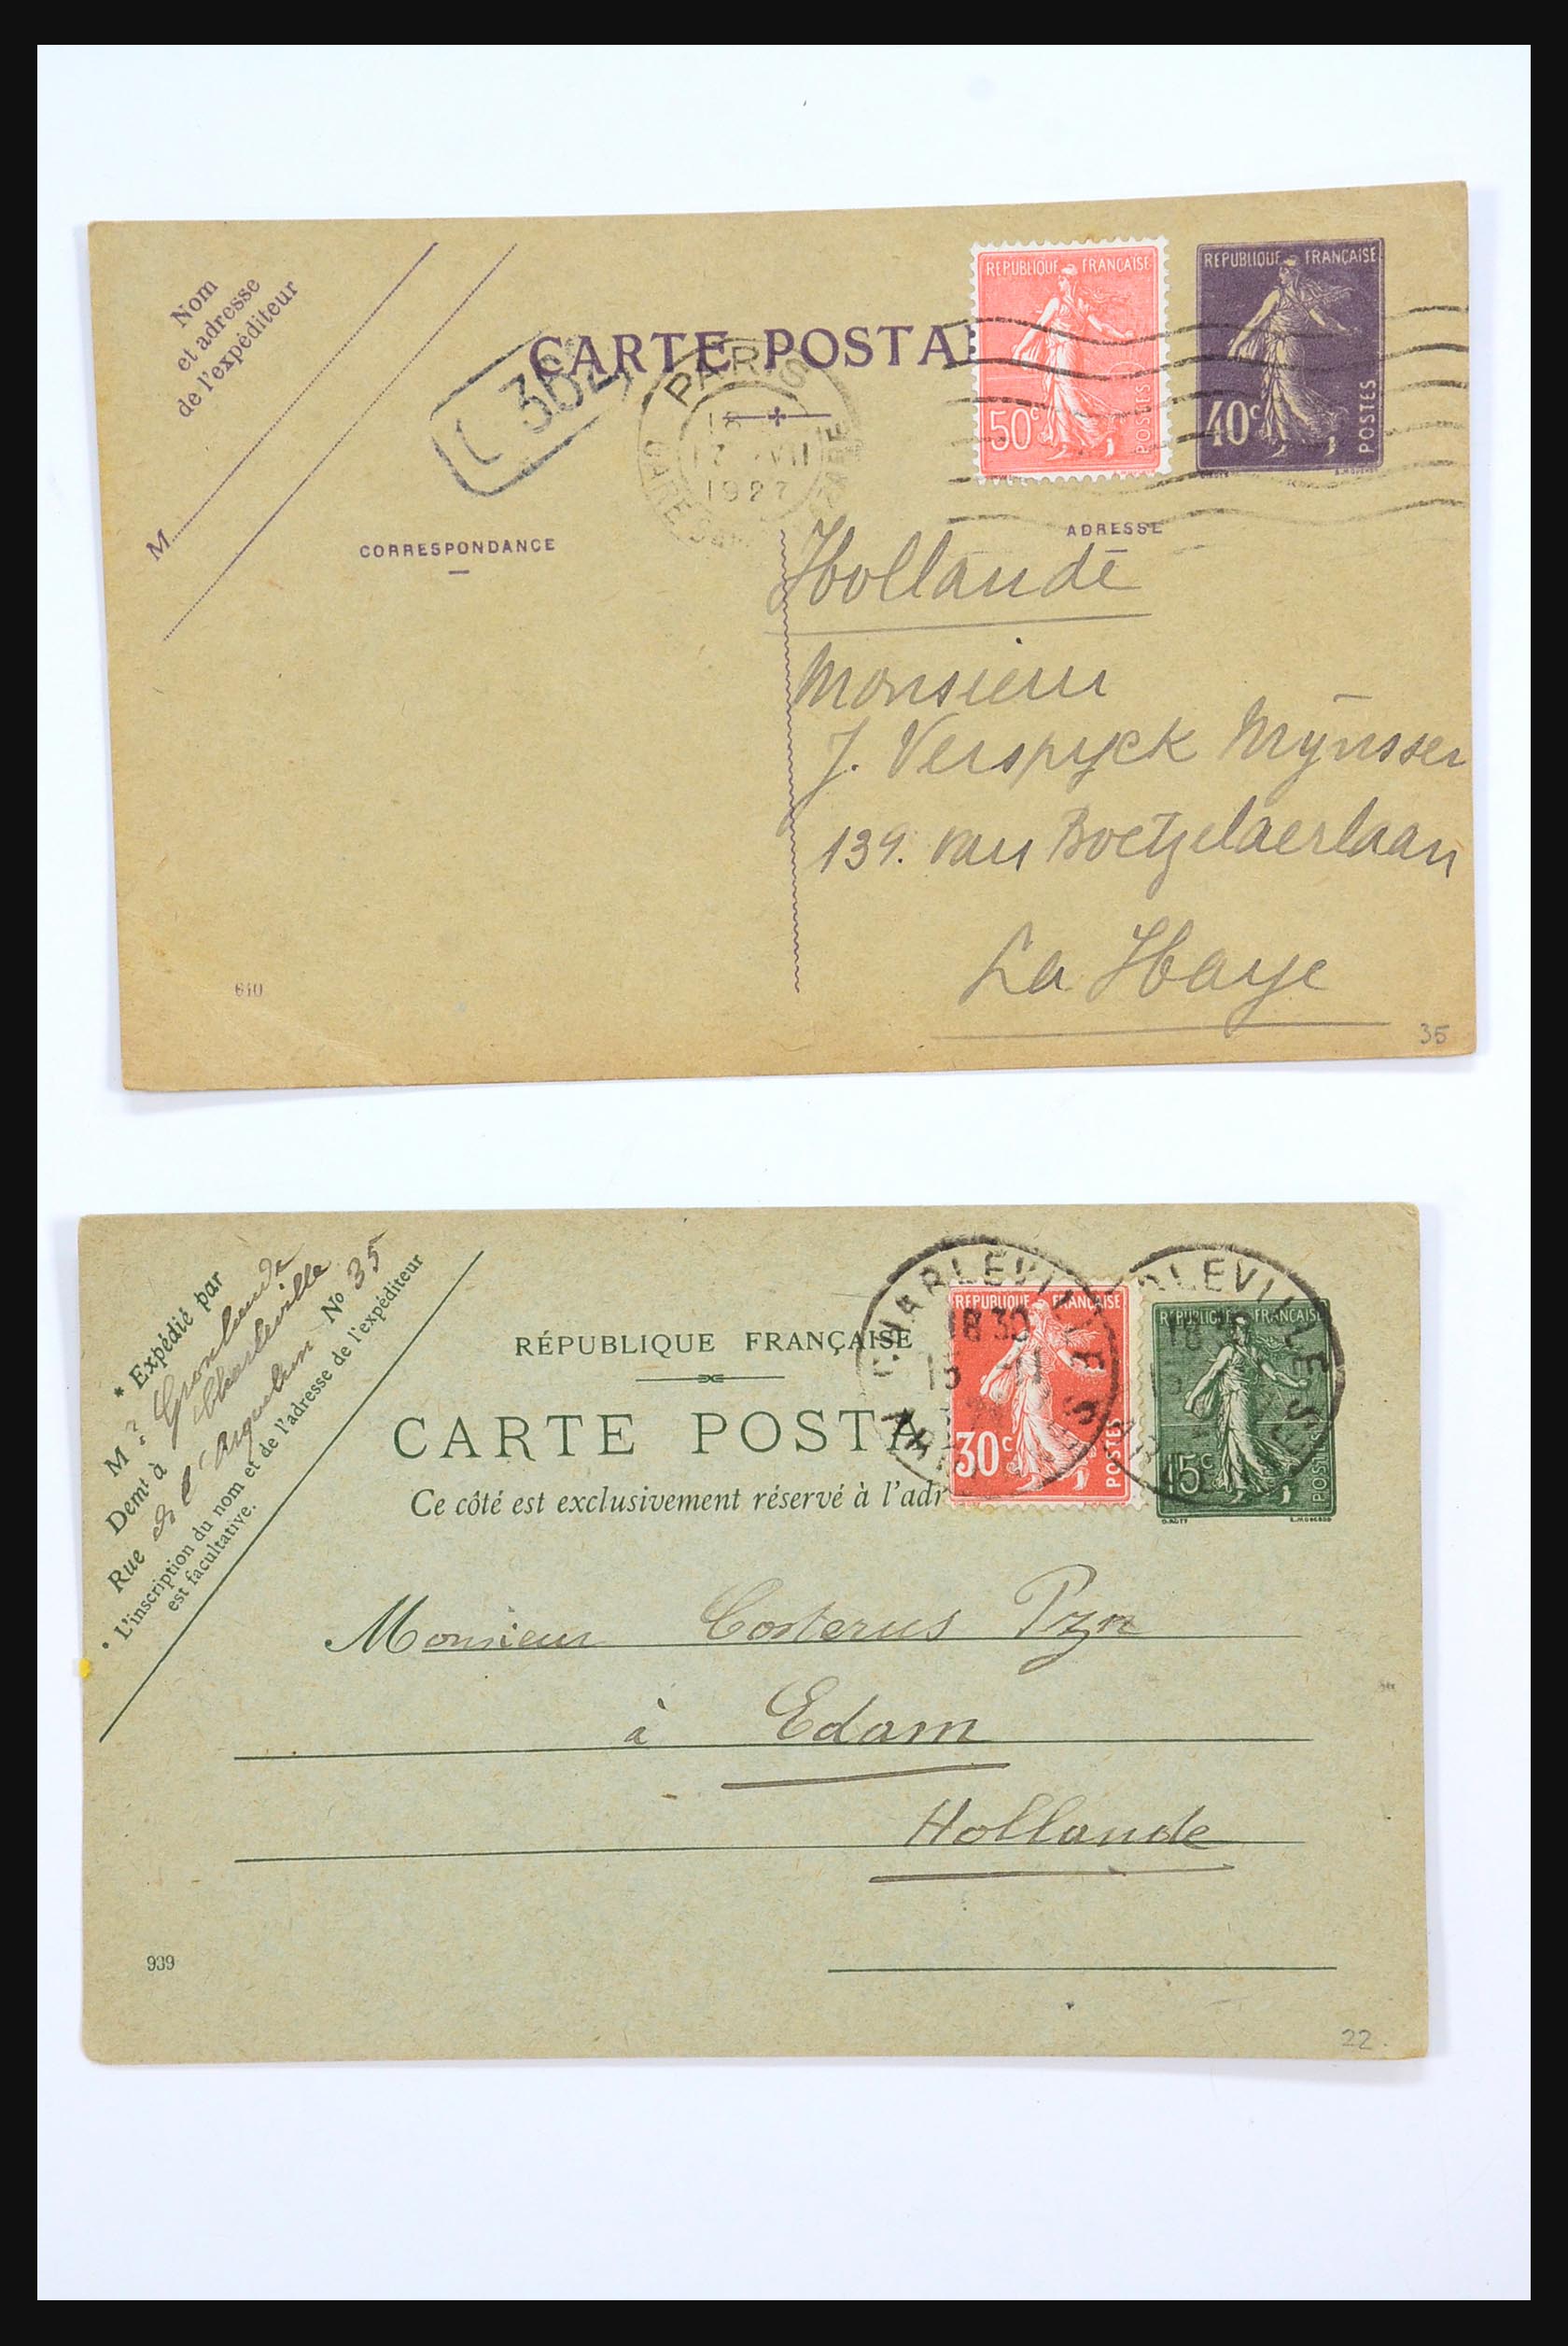 Nom
et adresse
de l'expéditeur
M
CARTE POSTA
PARIS
1927
GARE
REPUBLIQUE FRANÇAISE
50c
POSTES
REPUBLIQUE FRANÇAISE
40c
POSTES
CORRESPONDANCE
ADRESSE
Hollande
Monsieur
J. Verspyck Mynssen
139. van Boetzelaerlaan
La Haye
610
35
* Expédié par
M
Demt à Charleville
Rue de l'Arquebuse No 35
* L'inscription du nom et de l'adresse de l'expéditeur
est facultative.
RÉPUBLIQUE FRANÇAISE
CARTE POSTA
Ce côté est exclusivement réservé à l'adr
CHARLEVILLE
18 30
REPUBLIQUE FRANÇAISE
30c
POSTES
REPUBLIQUE FRANÇAISE
15c
POSTES
Monsieur Costerus Pzn
à Edam
Hollande
939
22.